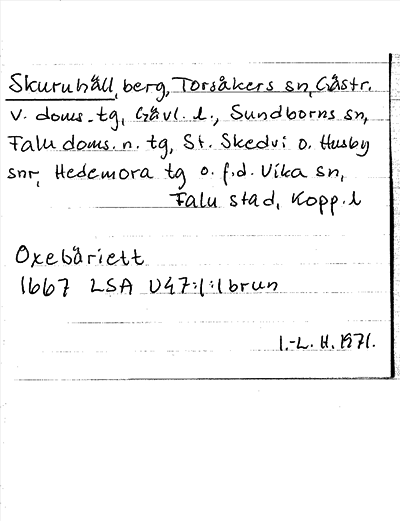 Skuruhäll, berg, Torsåkers sn, Gästr.
v. doms. tg, Gävl. l., Sundborns sn,
Falu doms. n. tg, St. Skedvi o. Husby
snr, Hedemora tg o. f.d. Vika sn,
Falu stad, Kopp. l
Oxebäriett
1667 LSA U47:1:1 brun
I.-L. H. 1971.